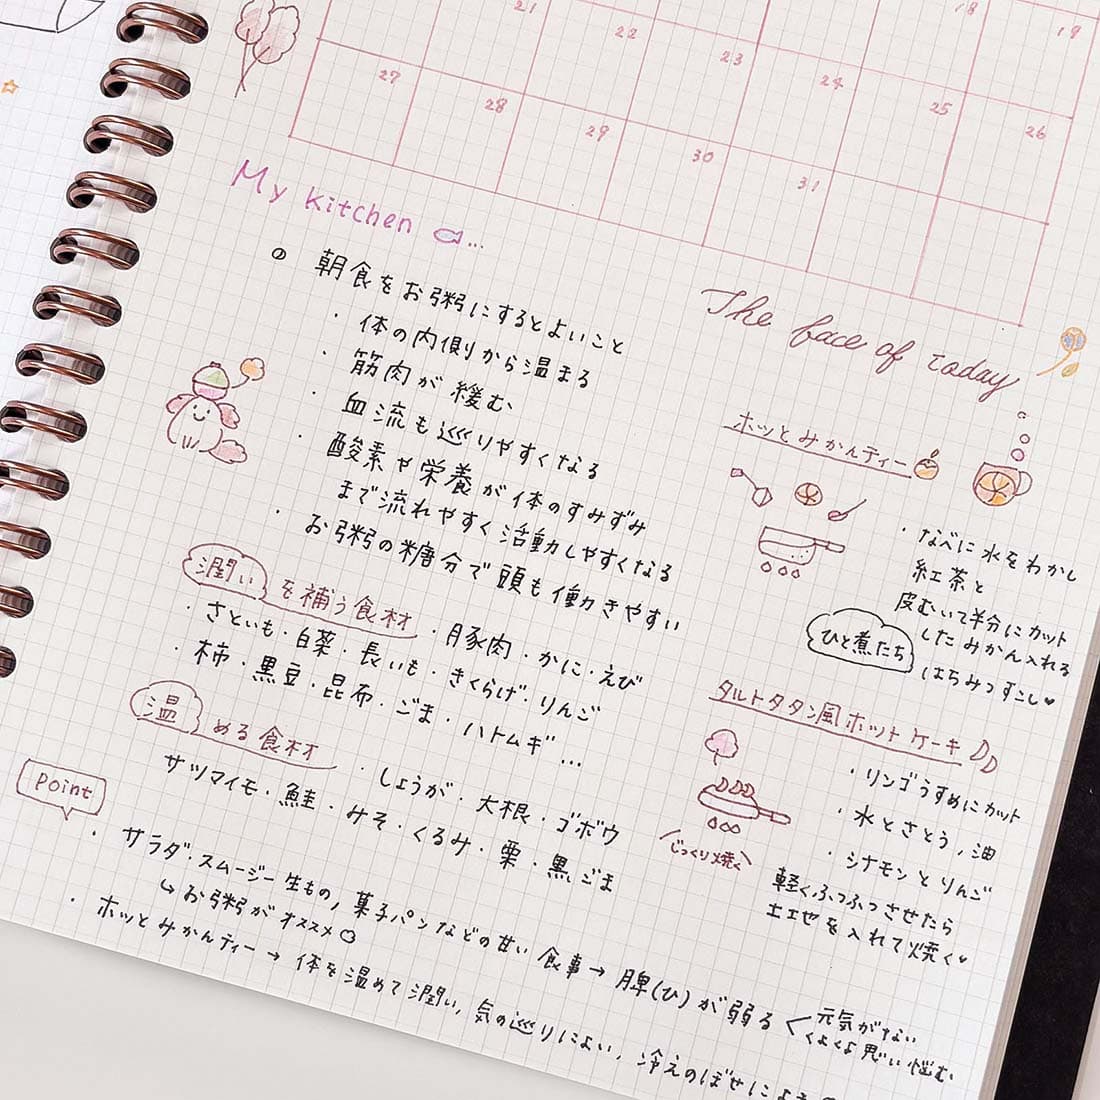 18
19
21
22
23
24
25
26
27
28
29
30
31
My kitchen ...
朝食をお粥にするとよいこと
・体の内側から温まる
・筋肉が緩む
・血流も巡りやすくなる
・酸素や栄養が体のすみずみ
まで流れやすく活動しやすくなる
・お粥の糖分で頭も働きやすい
潤いを補う食材・豚肉・かに・えび
・さといも・白菜・長いも・きくらげ・りんご
・柿・黒豆・昆布・ごま・ハトムギ…
温める食材・しょうが・大根・ゴボウ
サツマイモ・鮭・みそ・くるみ・栗・黒ごま
Point
・サラダ・スムージー生もの,菓子パンなどの甘い食事→脾(ひ)が弱る<元気がない
くよくよ思い悩む
↳お粥がオススメ
・ホッとみかんティー→体を温めて潤い,気の巡りによい,冷えのぼせによ
The face of today
ホッとみかんティー
・なべに水をわかし
紅茶と
皮むいて半分にカット
したみかん入れる
ひと煮たち
はちみつすこし♥
タルトタタン風ホットケーキ
・リンゴうすめにカット
・水とさとう,油
・シナモンとりんご
\じっくり焼く/
軽くふつふつさせたら
生地を入れて焼く♥